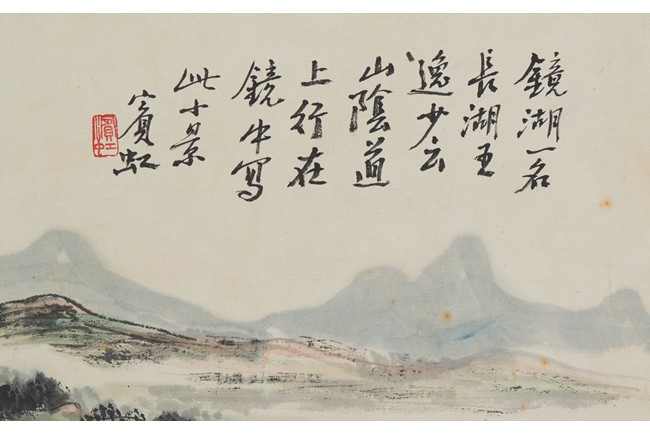 鏡湖一名
長湖王
逸少云
山陰道
上行在
鏡中寫
此小景
賓虹